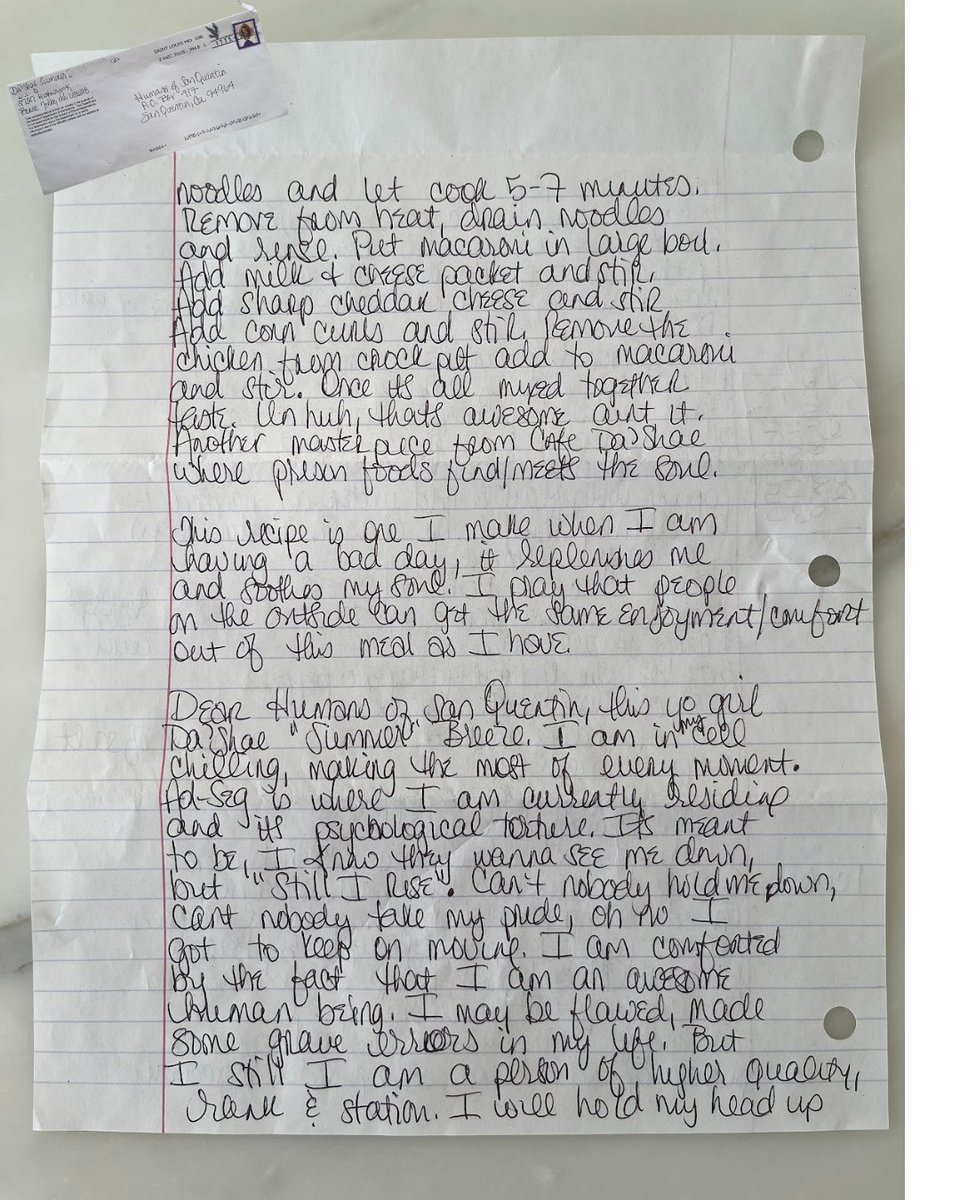 Humans of San Quentin
P.O. Box
San Quentin, Ca 94964
noodles and let cook 5-7 minutes.
Remove from heat, drain noodles
and rense. Put macaroni in large boul.
Add milk & cheese packet and stir.
Add sharp cheddar cheese and stir
Add corn curls and stir. Remove the
chicken from crock pot add to macaroni
and stir. Once its all mixed together
taste. Un huh, thats awesome aint it.
Another masterpiece from Cafe Da'Shae
where prison foods find/meets the soul.
This recipe is one I make when I am
having a bad day, it replenishes me
and soothes my soul. I pray that people
on the outside can get the same enjoyment/comfort
out of this meal as I have.
Dear Humans of San Quentin, this yo girl
Da'Shae "Summer" Breeze. I am in my cell
chilling, making the most of every moment.
Ad-Seg is where I am currently residing
and its psychological torture. Its meant
to be, I know they wanna see me down,
but "Still I Rise". Can't nobody hold me down,
cant nobody take my pride, oh no I
got to keep on moving. I am comforted
by the fact that I am an awesome
human being. I may be flawed, made
some grave errors in my life. But
I still I am a person of higher quality,
rank & station. I will hold my head up